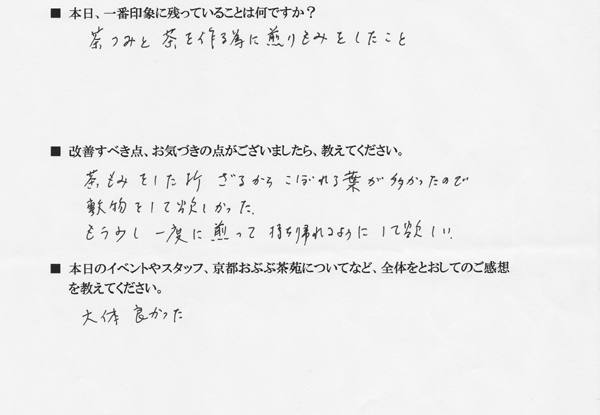 ■ 本日、一番印象に残っていることは何ですか？
茶つみと茶を作る為に煎りもみをしたこと
■ 改善すべき点、お気づきの点がございましたら、教えてください。
茶もみをした所 ざるから こぼれる葉が多かったので
敷物をして欲しかった.
もう少し一度に煎って 持ち帰れるように して欲しい.
■ 本日のイベントやスタッフ、京都おぶぶ茶苑についてなど、全体をとおしてのご感想
を教えてください。
大体 良かった